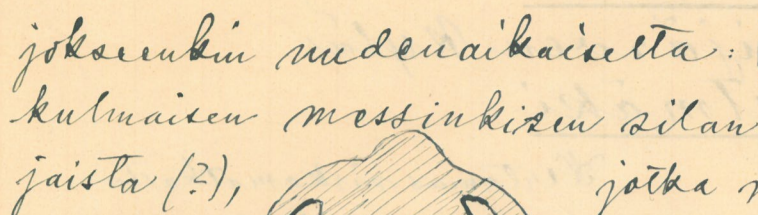 jokseenkin uudenaikaiselta:
kulmaisen messinkisen silan
jaista (?), jotka